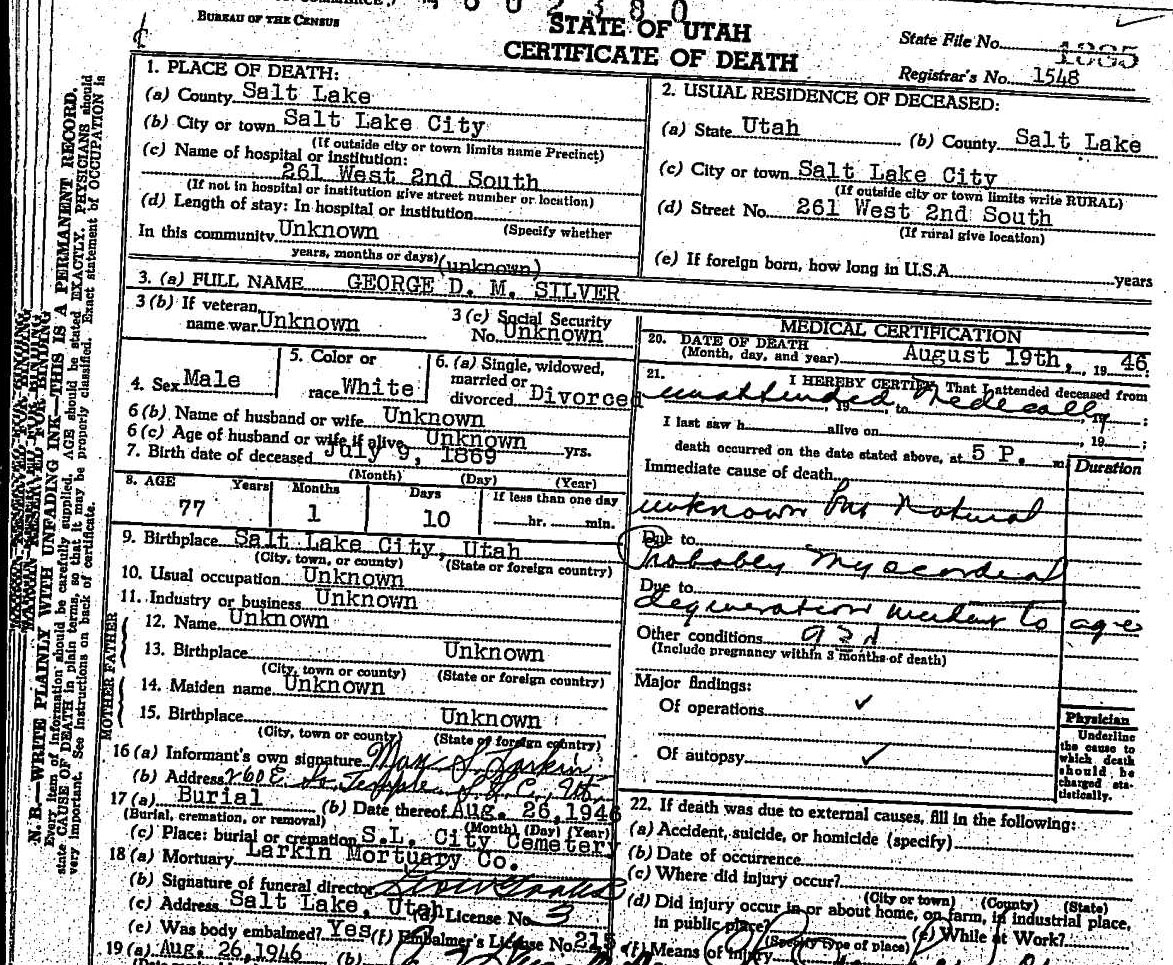 BUREAU OF THE CENSUS
STATE OF UTAH
CERTIFICATE OF DEATH
State File No. 1885
Registrar's No. 1548
N. B.—WRITE PLAINLY WITH UNFADING INK—THIS IS A PERMANENT RECORD.
Every item of information should be carefully supplied. AGE should be stated EXACTLY. PHYSICIANS should
state CAUSE OF DEATH in plain terms, so that it may be properly classified. Exact statement of OCCUPATION is
very important. See instructions on back of certificate.
1. PLACE OF DEATH:
(a) County Salt Lake
(b) City or town Salt Lake City
(If outside city or town limits name Precinct)
(c) Name of hospital or institution:
261 West 2nd South
(If not in hospital or institution give street number or location)
(d) Length of stay: In hospital or institution
In this community Unknown (Specify whether
years, months or days) (unknown)
2. USUAL RESIDENCE OF DECEASED:
(a) State Utah (b) County Salt Lake
(c) City or town Salt Lake City
(If outside city or town limits write RURAL)
(d) Street No. 261 West 2nd South
(If rural give location)
(e) If foreign born, how long in U.S.A. years
3. (a) FULL NAME GEORGE D. M. SILVER
3 (b) If veteran, name war Unknown
3 (c) Social Security No. Unknown
4. Sex Male
5. Color or race White
6. (a) Single, widowed, married or divorced Divorced
6 (b) Name of husband or wife Unknown
6 (c) Age of husband or wife if alive Unknown yrs.
7. Birth date of deceased July 9, 1869
(Month) (Day) (Year)
8. AGE Years Months Days If less than one day
77 1 10 hr. min.
9. Birthplace Salt Lake City, Utah
(City, town, or county) (State or foreign country)
10. Usual occupation Unknown
11. Industry or business Unknown
FATHER
12. Name Unknown
13. Birthplace Unknown
(City, town or county) (State or foreign country)
MOTHER
14. Maiden name Unknown
15. Birthplace Unknown
(City, town or county) (State or foreign country)
16 (a) Informant's own signature Max S. Larkin
(b) Address 260 E. So. Temple S. L. C., Ut.
17 (a) Burial (b) Date thereof Aug. 26, 1946
(Burial, cremation, or removal) (Month) (Day) (Year)
(c) Place: burial or cremation S.L. City Cemetery
18 (a) Mortuary Larkin Mortuary Co.
(b) Signature of funeral director
(c) Address Salt Lake, Utah (d) License No. 3
(e) Was body embalmed? Yes (f) Embalmer's License No. 215
19 (a) Aug. 26, 1946 (b)
MEDICAL CERTIFICATION
20. DATE OF DEATH
(Month, day, and year) August 19th, 19 46
21. I HEREBY CERTIFY That I attended deceased from
unattended medically, 19 to 19 ;
I last saw h alive on , 19 ;
death occurred on the date stated above, at 5 P. m.
Duration
Immediate cause of death
unknown but Natural
Due to
Probabley Myocardial
Due to
degeneration incident to age
Other conditions 93d
(Include pregnancy within 3 months of death)
Major findings:
Of operations ✓
Of autopsy ✓
Physician
Underline
the cause to
which death
should be
charged sta-
tistically.
22. If death was due to external causes, fill in the following:
(a) Accident, suicide, or homicide (specify)
(b) Date of occurrence
(c) Where did injury occur?
(City or town) (County) (State)
(d) Did injury occur in or about home, on farm, in industrial place,
in public place? (e) While at Work?
(Specify type of place)
(f) Means of injury